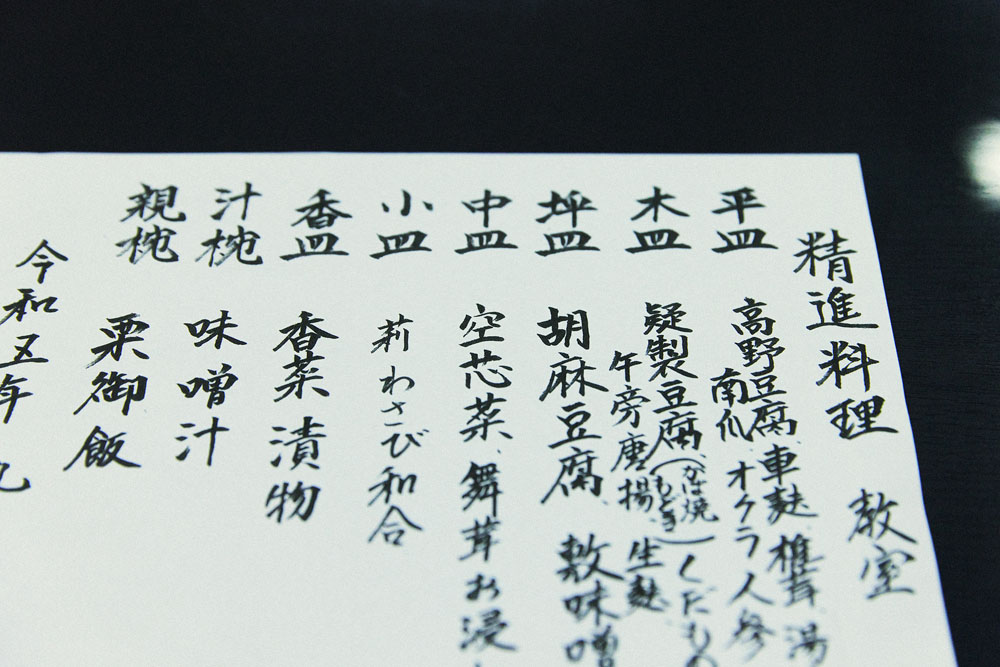 精進料理 教室
平皿 高野豆腐、車麩、椎茸、湯
南瓜、オクラ人参
木皿 疑製豆腐(かば焼もどき)くだもの
午旁唐揚、生麩
坪皿 胡麻豆腐、敷味噌
中皿 空芯菜、舞茸お浸し
小皿 莉わさび和合
香皿 香菜漬物
汁椀 味噌汁
親椀 栗御飯
今和五年 九